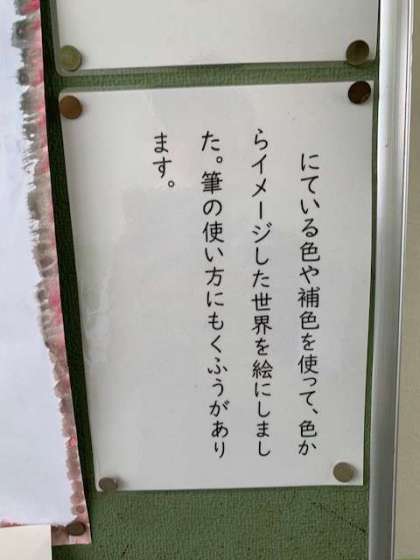 にている色や補色を使って、色か
らイメージした世界を絵にしまし
た。筆の使い方にもくふうがあり
ます。